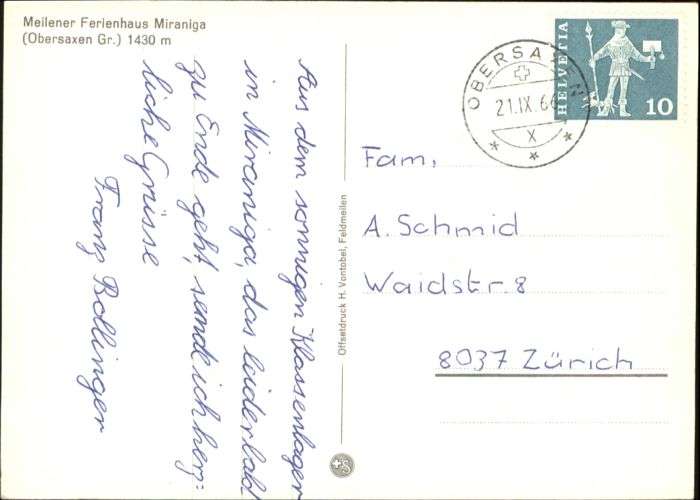 Meilener Ferienhaus Miraniga
(Obersaxen Gr.) 1430 m
Aus dem sonnigen Klassenlager
in Miraniga, das leider bald
zu Ende geht, sende ich herz=
liche Grüsse
Franz Bollinger
Offsetdruck H. Vontobel, Feldmeilen
OBERSAXEN
21.IX.66
X
HELVETIA
10
Fam.
A. Schmid
Waidstr. 8
8037 Zürich